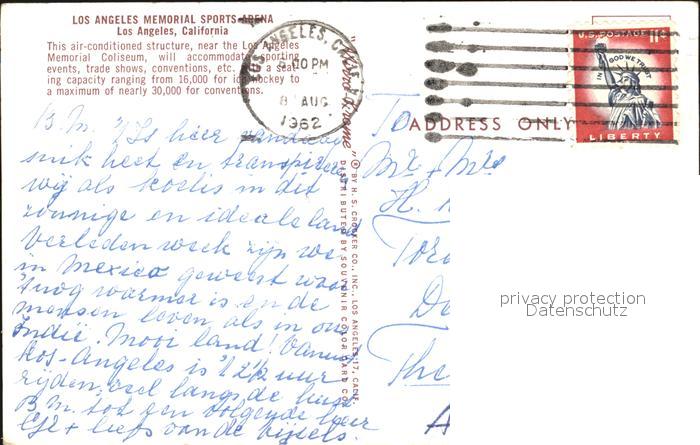 LOS ANGELES MEMORIAL SPORTS ARENA
Los Angeles, California
This air-conditioned structure, near the Los Angeles
Memorial Coliseum, will accommodate sporting
events, trade shows, conventions, etc. seat-
ing capacity ranging from 16,000 for ice hockey to
a maximum of nearly 30,000 for conventions.
LOS ANGELES, CALIF.
PM
8 AUG
1962
U.S. POSTAGE 11¢
IN GOD WE TRUST
LIBERTY
ADDRESS ONLY
BY H. S. CROCKER CO., INC., LOS ANGELES 17, CALIF.
DISTRIBUTED BY SOUVENIR COLOR CARD CO.
To
Mr + Mrs
H.
The
B.M. 't Is hier vandaag
snik heet en transpireren
wij als koelis in dit
zonnige en ideale land
Verleden week zijn we
in Mexico geweest waar
't nog warmer is en de
mensen leven als in ons
Indië. Mooi land! Vanuit
Los-Angeles is 't 2½ uur
rijden, veel langs de kust
B.M. tot een volgende keer
+ liefs van de
privacy protection
Datenschutz